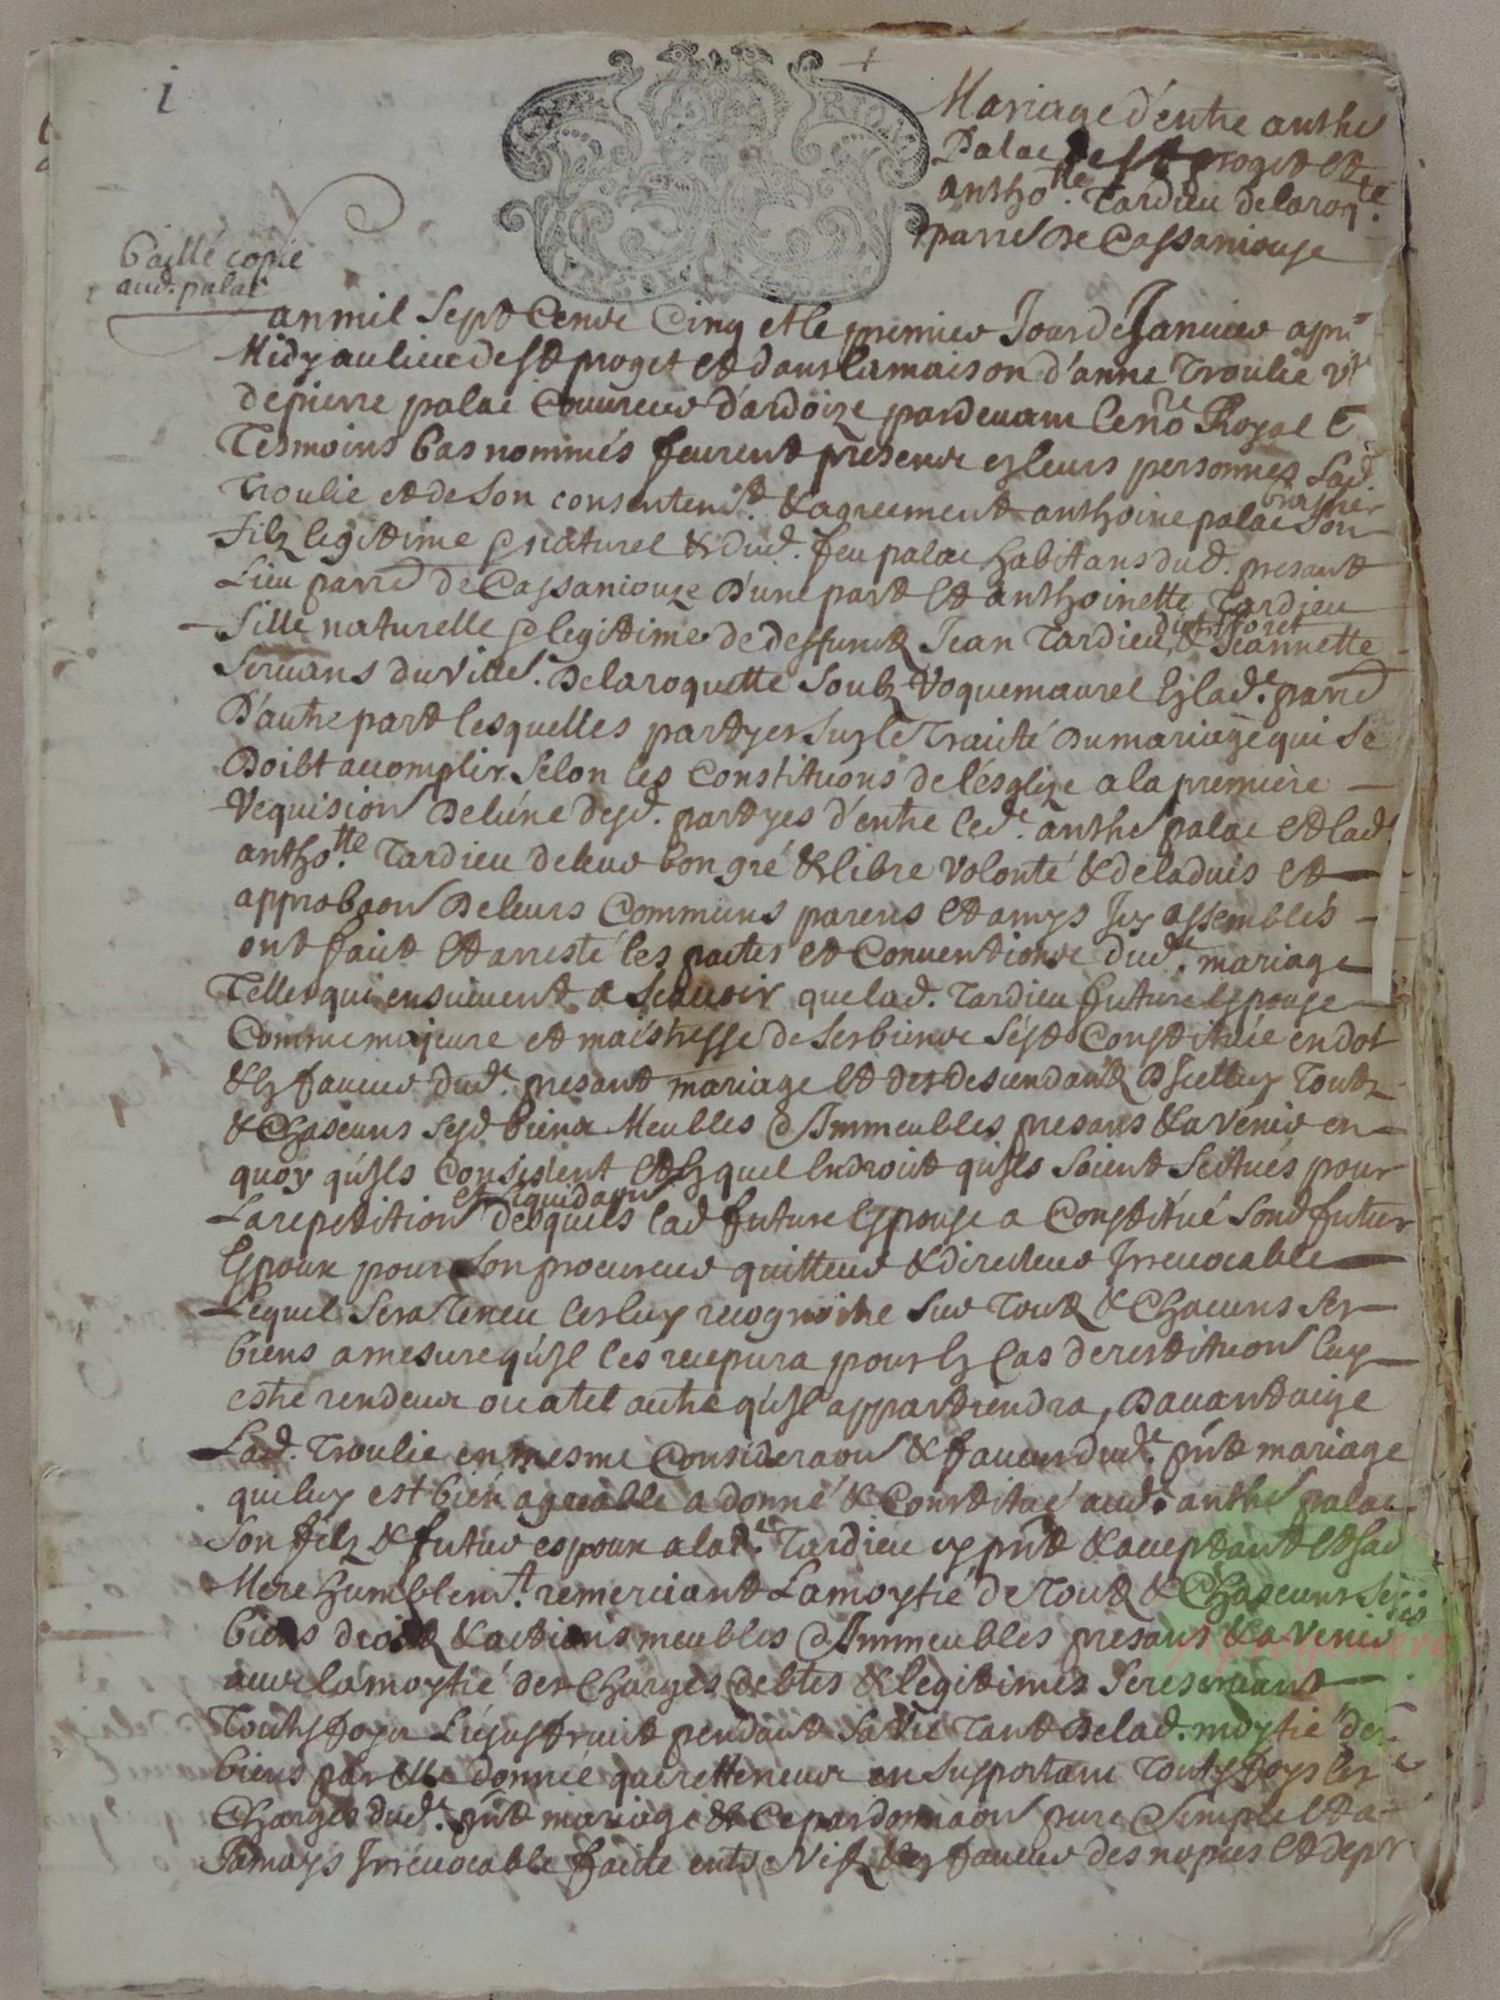 i
Mariage d'entre anthe
Palac de St proget et
antho.tte Tardieu de laroq.te
parre de Cassaniouse
baillé copie
aud. palac
an mil sept cens cinq et le premier Jour de Janvier apr
Midy au lieu de St proget et dans la maison d'anne Troulie v
de pierre palac couvreur d'ardoize pardevant le no.re Royal &
Tesmoins bas nommés feurent presens en leurs personnes lad.
Troulie et de son consentem.t & agreement anthoine palac brassier son
filz legitime & naturel & dud. feu palac habitans dud. presant
Lieu parre de Cassaniouze d'une part et anthoinette Tardieu
fille naturelle & legitime de deffunct Jean Tardieu & Jeannette
du villa. de laroquette soubz Roquemaurel en lad.e parre
D'autre part lesquelles partyes sur le Traicté du mariage qui se
Doibt accomplir selon les constituons de lesglize a la premiere
Requision de l'une desd. partyes d'entre led.t anthe palac et lad.
antho.tte Tardieu de leur bon gré & libre volonté & de ladvis et
approbaon de leurs communs parens et amys Icy assemblés
ont faict et arresté les pactes et conventions dud.t mariage
Telles qui ensuivent a scavoir que lad. Tardieu future espouse
Comme majeure et maistresse de ses biens s'est constituée en dot
& en faveur dud.t presant mariage et des descendantz d'Icelluy Toutz
& chascuns sesd. biens Meubles & Immeubles presans & a venir en
quoy qu'ils consistent et en quel endroit qu'ils soient scitués pour
La repetition et liquidaon desquels lad future espouse a constitué sond futur
Espoux pour son procureur quitteur & directeur Irrevocable
Lequel sera teneu les luy recognoitre sur Toutz & chacuns ses
biens a mesure qu'il les recepvra pour en cas de restitution luy
estre rendeus ou a tel autre qu'il appartiendra, Davantaige
Lad. Troulie en mesme consideraon & faveur dud.t pnt mariage
qui luy est bien agreable a donné & constitué aud. anthe palac
son filz & futur espoux a lad.e Tardieu cy pnt & acceptant et sad
Mere humblem.t remerciant La moytié de Toutz & chascuns ses
biens droitz & actions meubles & Immeubles presans & a venir
avec la moytié des charges debtes & legitimes se reservant
Toutesfoys L'usufruict pendant sa vie Tant de lad. moytié des
biens par elle donnée que retteneue en suportant Toutesfoys les
charges dud.t pnt mariage & ce par donnaon pure simple et a
Jamays Irrevocable faicte entre vifz & en faveur des nopces et de